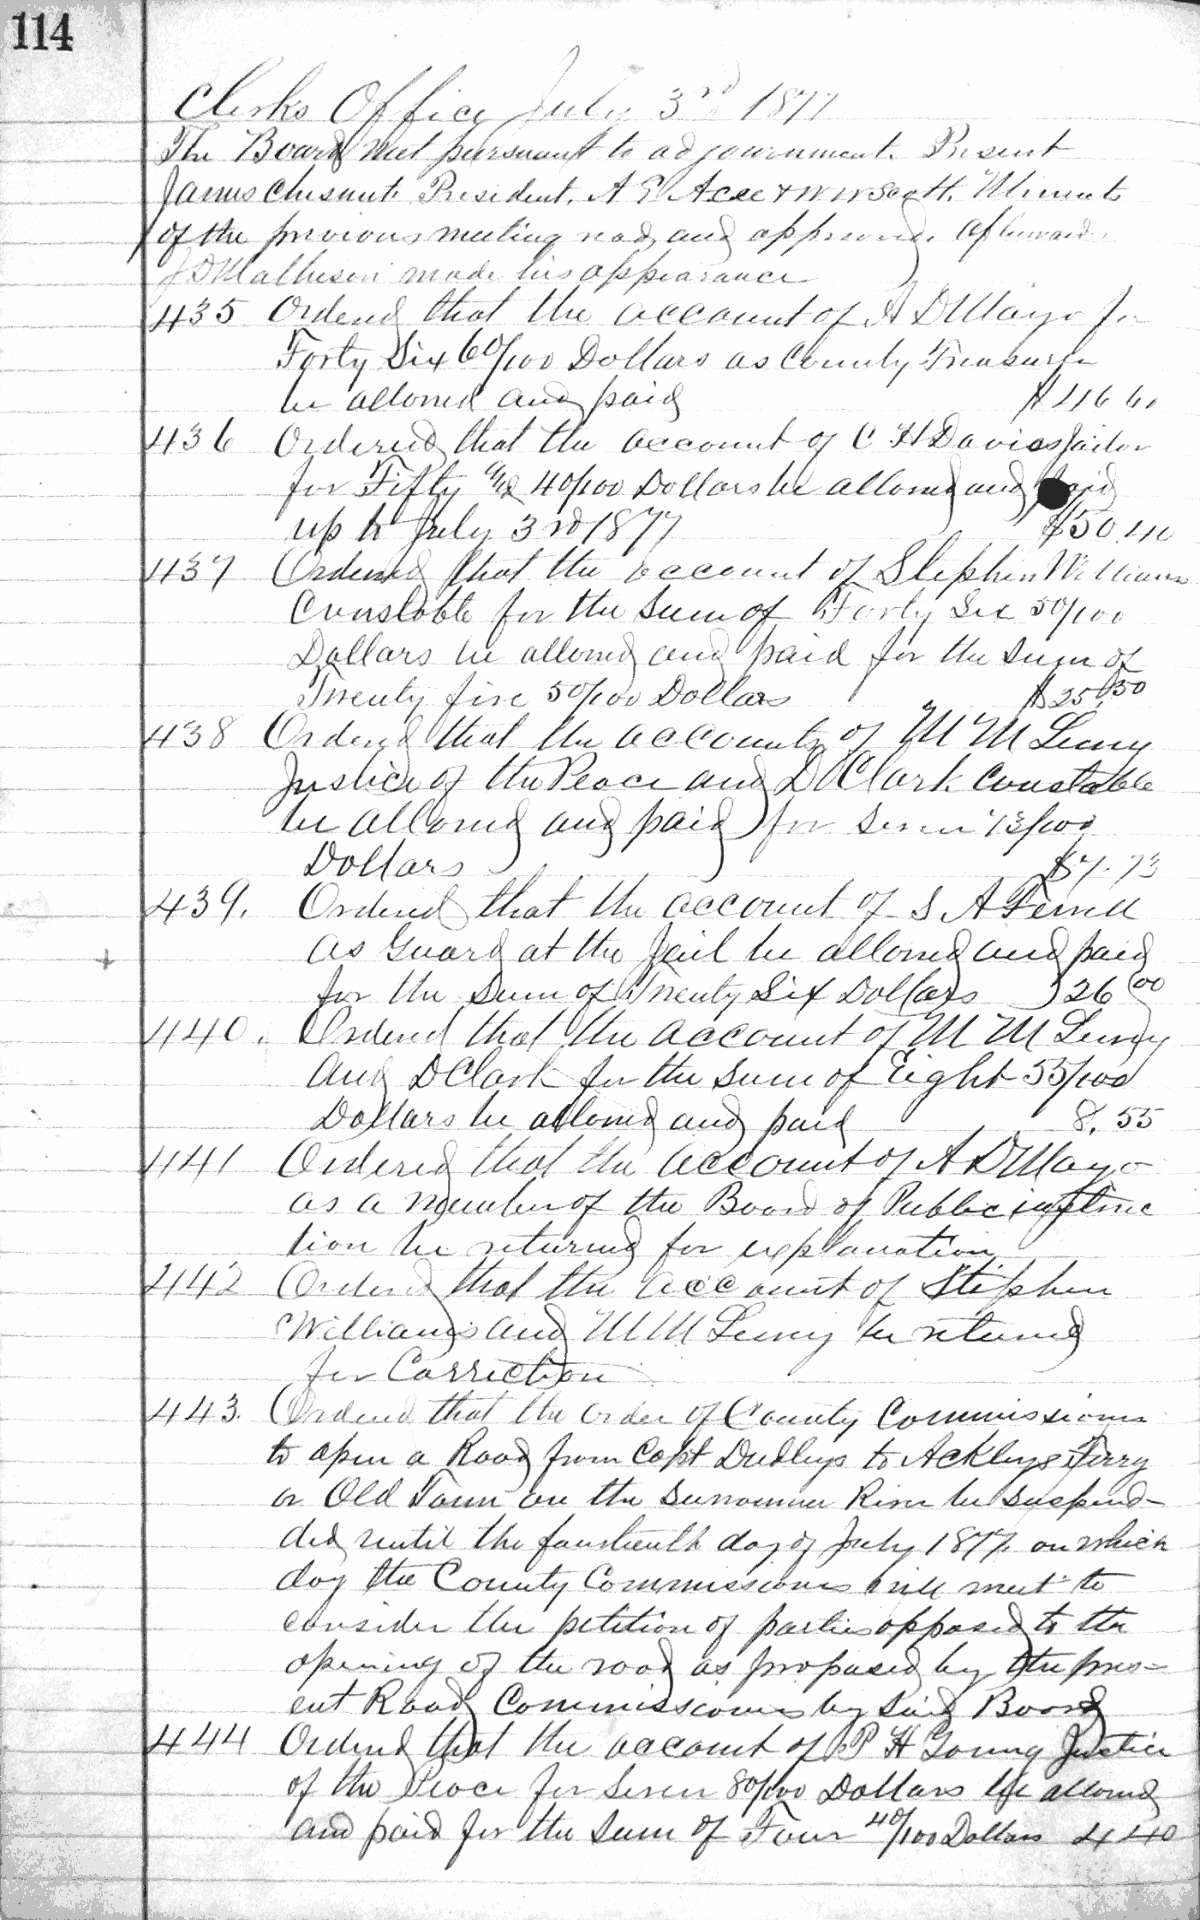 114
Clerks Office July 3rd 1877
The Board met pursuant to adjournment. Present
James Chesnut President. A E Acee & W W Scott. Minuets
of the previous meeting read and approved. Afterward
J D Matheson made his appearance
435 Ordered that the account of A D Mayo for
Forty Six 60/100 Dollars as County Treasurer
be allowed and paid $46 60
436 Ordered that the account of C H Davis Jailor
for Fifty 40/100 Dollars be allowed and paid
up to July 3rd 1877 $50.40
437 Ordered that the account of Stephen Williams
Constable for the Sum of Forty Six 50/100
Dollars be allowed and paid for the Sum of
Twenty five 50/100 Dollars $25.50
438 Ordered that the accounts of M M
Justice of the Peace and D Clark Constable
be allowed and paid for Seven 73/100
Dollars $7.73
439. Ordered that the account of S A Ferrell
as Guard at the Jail be allowed and paid
for the Sum of Twenty Six Dollars 26 00
440. Ordered that the account of M M
and D Clark for the Sum of Eight 55/100
Dollars be allowed and paid 8.55
441 Ordered that the account of A D Mayo
as a member of the Board of Public instruc
tion be returned for explanation
442 Ordered that the account of Stephen
Williams and M M be returned
for Correction
443. Ordered that the order of County Commissioners
to open a Road from Capt Dudleys to Ackleys Ferry
or Old Town on the Suwannee River be Suspend-
ded until the fourteenth day of July 1877 on which
day the County Commissioners will meet to
consider the petition of parties opposed to the
opening of the road as proposed by the pres-
ent Road Commissioners by Said Board
444 Ordered that the account of P H Young Justice
of the Peace for Seven 80/100 Dollars be allowed
and paid for the Sum of Four 40/100 Dollars 4 40